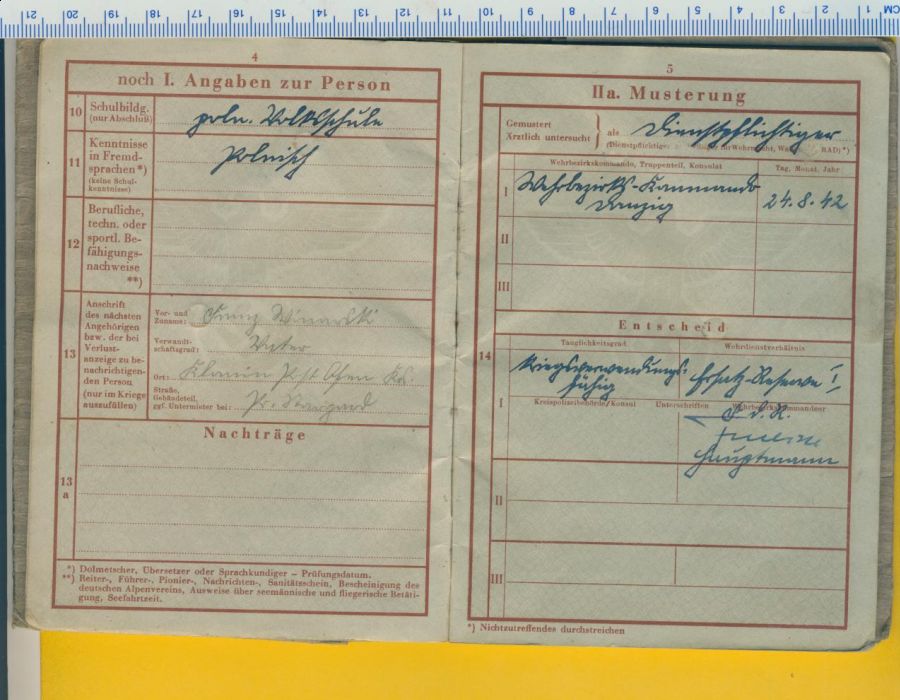 CM 1 2 3 4 5 6 7 8 9 10 11 12 13 14 15 16 17 18 19 20 21
4
noch I. Angaben zur Person
10 Schulbildg.
(nur Abschluß)
poln. Volksschule
11 Kenntnisse
in Fremd-
sprachen*)
(keine Schul-
kenntnisse)
Polnisch
12 Berufliche,
techn. oder
sportl. Be-
fähigungs-
nachweise
**)
13 Anschrift
des nächsten
Angehörigen
bzw. der bei
Verlust-
anzeige zu be-
nachrichtigen-
den Person
(nur im Kriege
auszufüllen)
Vor- und
Zuname: Franz
Verwandt-
schaftsgrad: Vater
Ort:
Straße,
Gebäudeteil,
ggf. Untermieter bei: Pr. Stargard
Nachträge
13
a
*) Dolmetscher, Übersetzer oder Sprachkundiger – Prüfungsdatum.
**) Reiter-, Führer-, Pionier-, Nachrichten-, Sanitätsschein, Bescheinigung des
deutschen Alpenvereins, Ausweise über seemännische und fliegerische Betäti-
gung, Seefahrtzeit.
5
IIa. Musterung
Gemustert
Ärztlich untersucht } als Dienstpflichtiger
(Dienstpflichtige RAD)*)
Wehrbezirkskommando, Truppenteil, Konsulat Tag, Monat, Jahr
I Wehrbezirks-Kommando
Danzig 24.8.42
II
III
Entscheid
14 Tauglichkeitsgrad Wehrdienstverhältnis
I Kriegsverwendungs-
fähig Ersatz-Reserve I
Kreispolizeibehörde/Konsul Unterschriften Wehrbezirkskommandeur
Hauptmann
II
III
*) Nichtzutreffendes durchstreichen